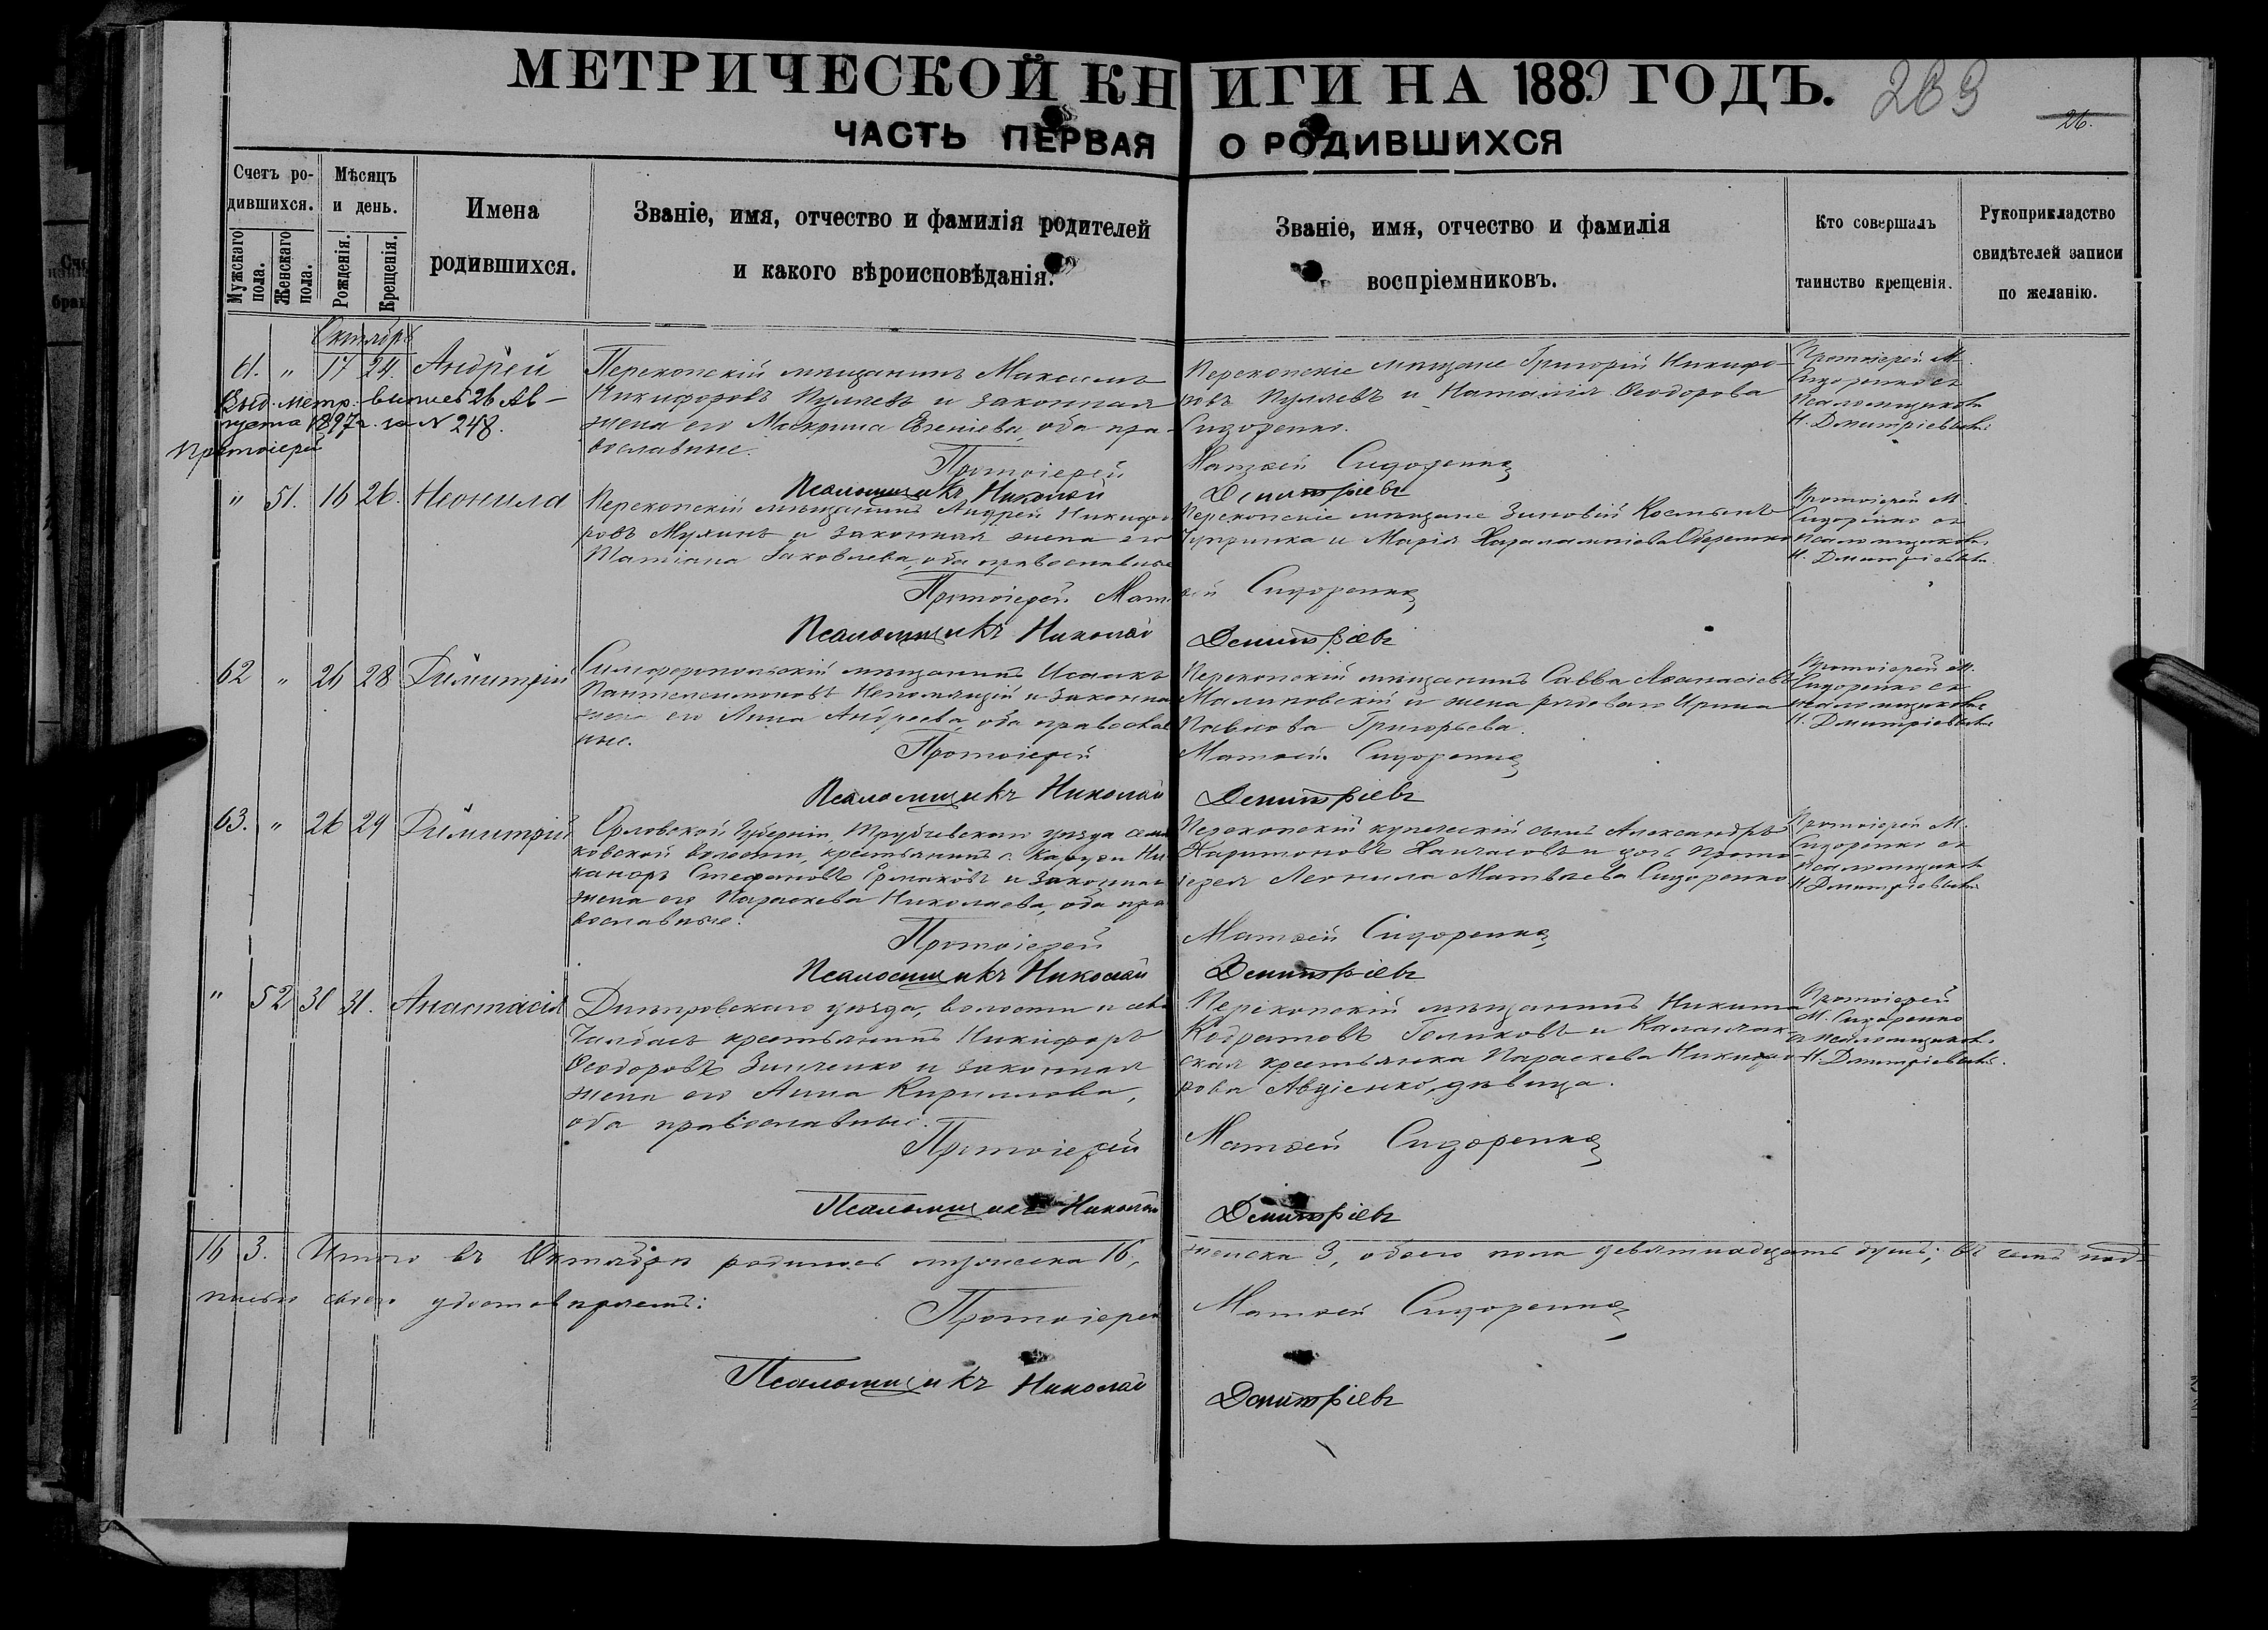 МЕТРИЧЕСКОЙ КНИГИ НА 1889 ГОДЪ.
269
26.
ЧАСТЬ ПЕРВАЯ О РОДИВШИХСЯ
Счетъ родившихся.
Мужскаго пола.
Женскаго пола.
Мѣсяцъ и день.
Рожденія.
Крещенія.
Имена
родившихся.
Званіе, имя, отчество и фамилія родителей
и какого вѣроисповѣданія.
Званіе, имя, отчество и фамилія
воспріемниковъ.
Кто совершалъ
таинство крещенія.
Рукоприкладство
свидѣтелей записи
по желанію.
Октябрь
61. " 17 24. Андрей
Выд. метр. выпись 26 Ав-
густа 1897 г. за N 248.
Протоіерей
Перекопскій мѣщанинъ Максимъ
Никифоровъ и законная
жена его Макрина Евгеніева, оба пра-
вославные.
Перекопскіе мѣщане Григорій Никифо-
ровъ и Наталія Ѳеодорова
Сидоренко.
Протоіерей М.
Сидоренко съ
псаломщикомъ
Н. Дмитріевымъ
Протоіерей Матѳей Сидоренко
Псаломщикъ Николай Дмитріевъ
" 51. 16 26. Неонила
Перекопскій мѣщанинъ Андрей Никифо-
ровъ и законная жена его
Татіана Іаковлева, оба православные
Перекопскіе мѣщане Зиновій
Чупринка и Марія Харалампіева
Протоіерей М.
Сидоренко съ
псаломщикомъ
Н. Дмитріевымъ.
Протоіерей Матѳей Сидоренко
Псаломщикъ Николай Дмитріевъ
62 " 26 28 Димитрій
Симферопольскій мѣщанинъ Исаакъ
Пантелеимоновъ Непомнящій и законная
жена его Анна Андреева, оба православ
ные.
Перекопскій мѣщанинъ Савва Аѳанасіевъ
Малиновскій и жена рядового Ирина
Павлова Григорьева.
Протоіерей М.
Сидоренко съ
псаломщикомъ
Н. Дмитріевымъ
Протоіерей Матѳей Сидоренко
Псаломщикъ Николай Дмитріевъ
63. " 26 29 Димитрій
Орловской Губерніи, Трубчевскаго уѣзда
волости, крестьянинъ с. Ни-
каноръ Стефановъ Ермаковъ и законная
жена его Параскева Николаева, оба пра-
вославные.
Перекопскій купеческій сынъ Александръ
Харитоновъ и дочь прото-
іерея Леонила Матвѣева Сидоренко
Протоіерей М.
Сидоренко съ
псаломщикомъ
Н. Дмитріевымъ
Протоіерей Матѳей Сидоренко
Псаломщикъ Николай Дмитріевъ
" 52 30 31. Анастасія
Днѣпровскаго уѣзда, волости и села
Чалбасъ крестьянинъ Никифоръ
Ѳеодоровъ Зинченко и законная
жена его Анна Кириллова,
оба православные.
Перекопскій мѣщанинъ Никита
Кодратовъ Голиковъ и Каланчак-
ская крестьянка Параскева Никифо-
рова Авдіенко, дѣвица.
Протоіерей
М. Сидоренко
съ псаломщикомъ
Н. Дмитріевымъ.
Протоіерей Матѳей Сидоренко
Псаломщикъ Николай Дмитріевъ
16 3. Итого въ Октябрѣ родилось мужеска 16, женска 3, обоего пола девятнадцать душъ; въ чемъ под-
писью своею удостовѣряемъ:
Протоіерей Матѳей Сидоренко
Псаломщикъ Николай Дмитріевъ